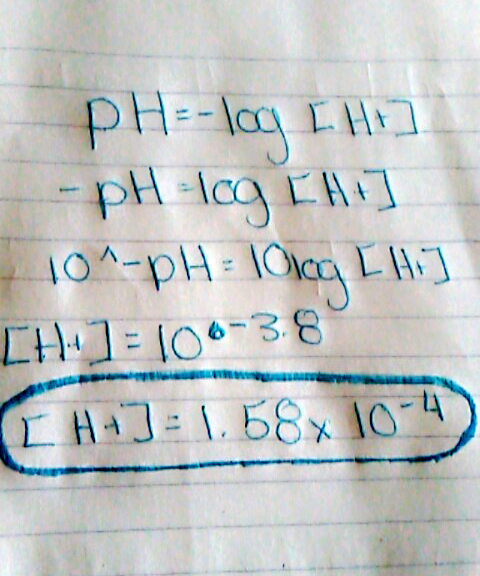 pH=-log [H+]
-pH=log [H+]
10^-pH=10log [H+]
[H+]=10^-3.8
[H+]=1.58x10-4